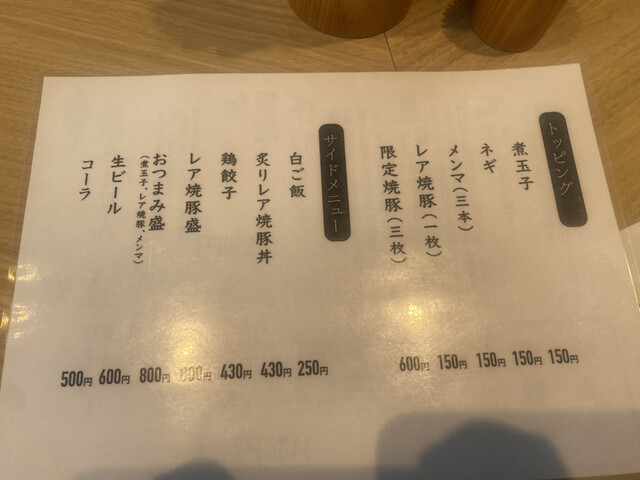 トッピング
煮玉子 150円
ネギ 150円
メンマ（三本） 150円
レア焼豚（一枚） 150円
限定焼豚（三枚） 600円
サイドメニュー
白ご飯 250円
炙りレア焼豚丼 430円
鶏餃子 430円
レア焼豚盛 円
おつまみ盛 800円
（煮玉子、レア焼豚、メンマ）
生ビール 600円
コーラ 500円